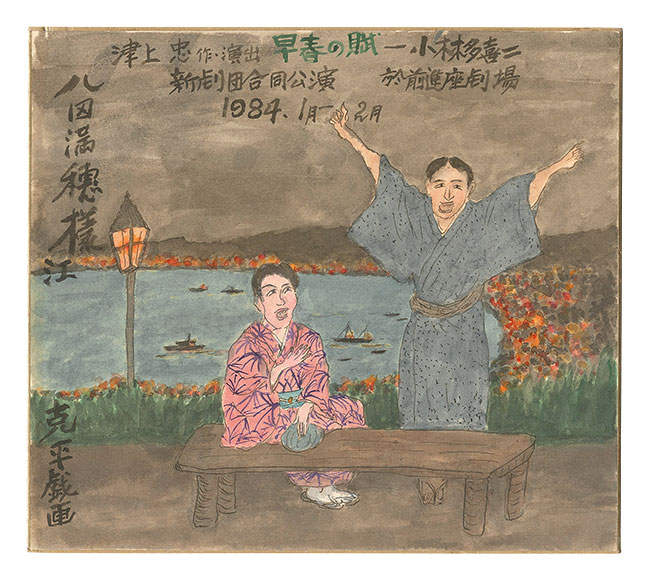 津上忠作・演出 早春の賦 ー小林多喜二
新劇団合同公演 於前進座劇場
1984.1月ー2月
八田満穂様江
克平戯画